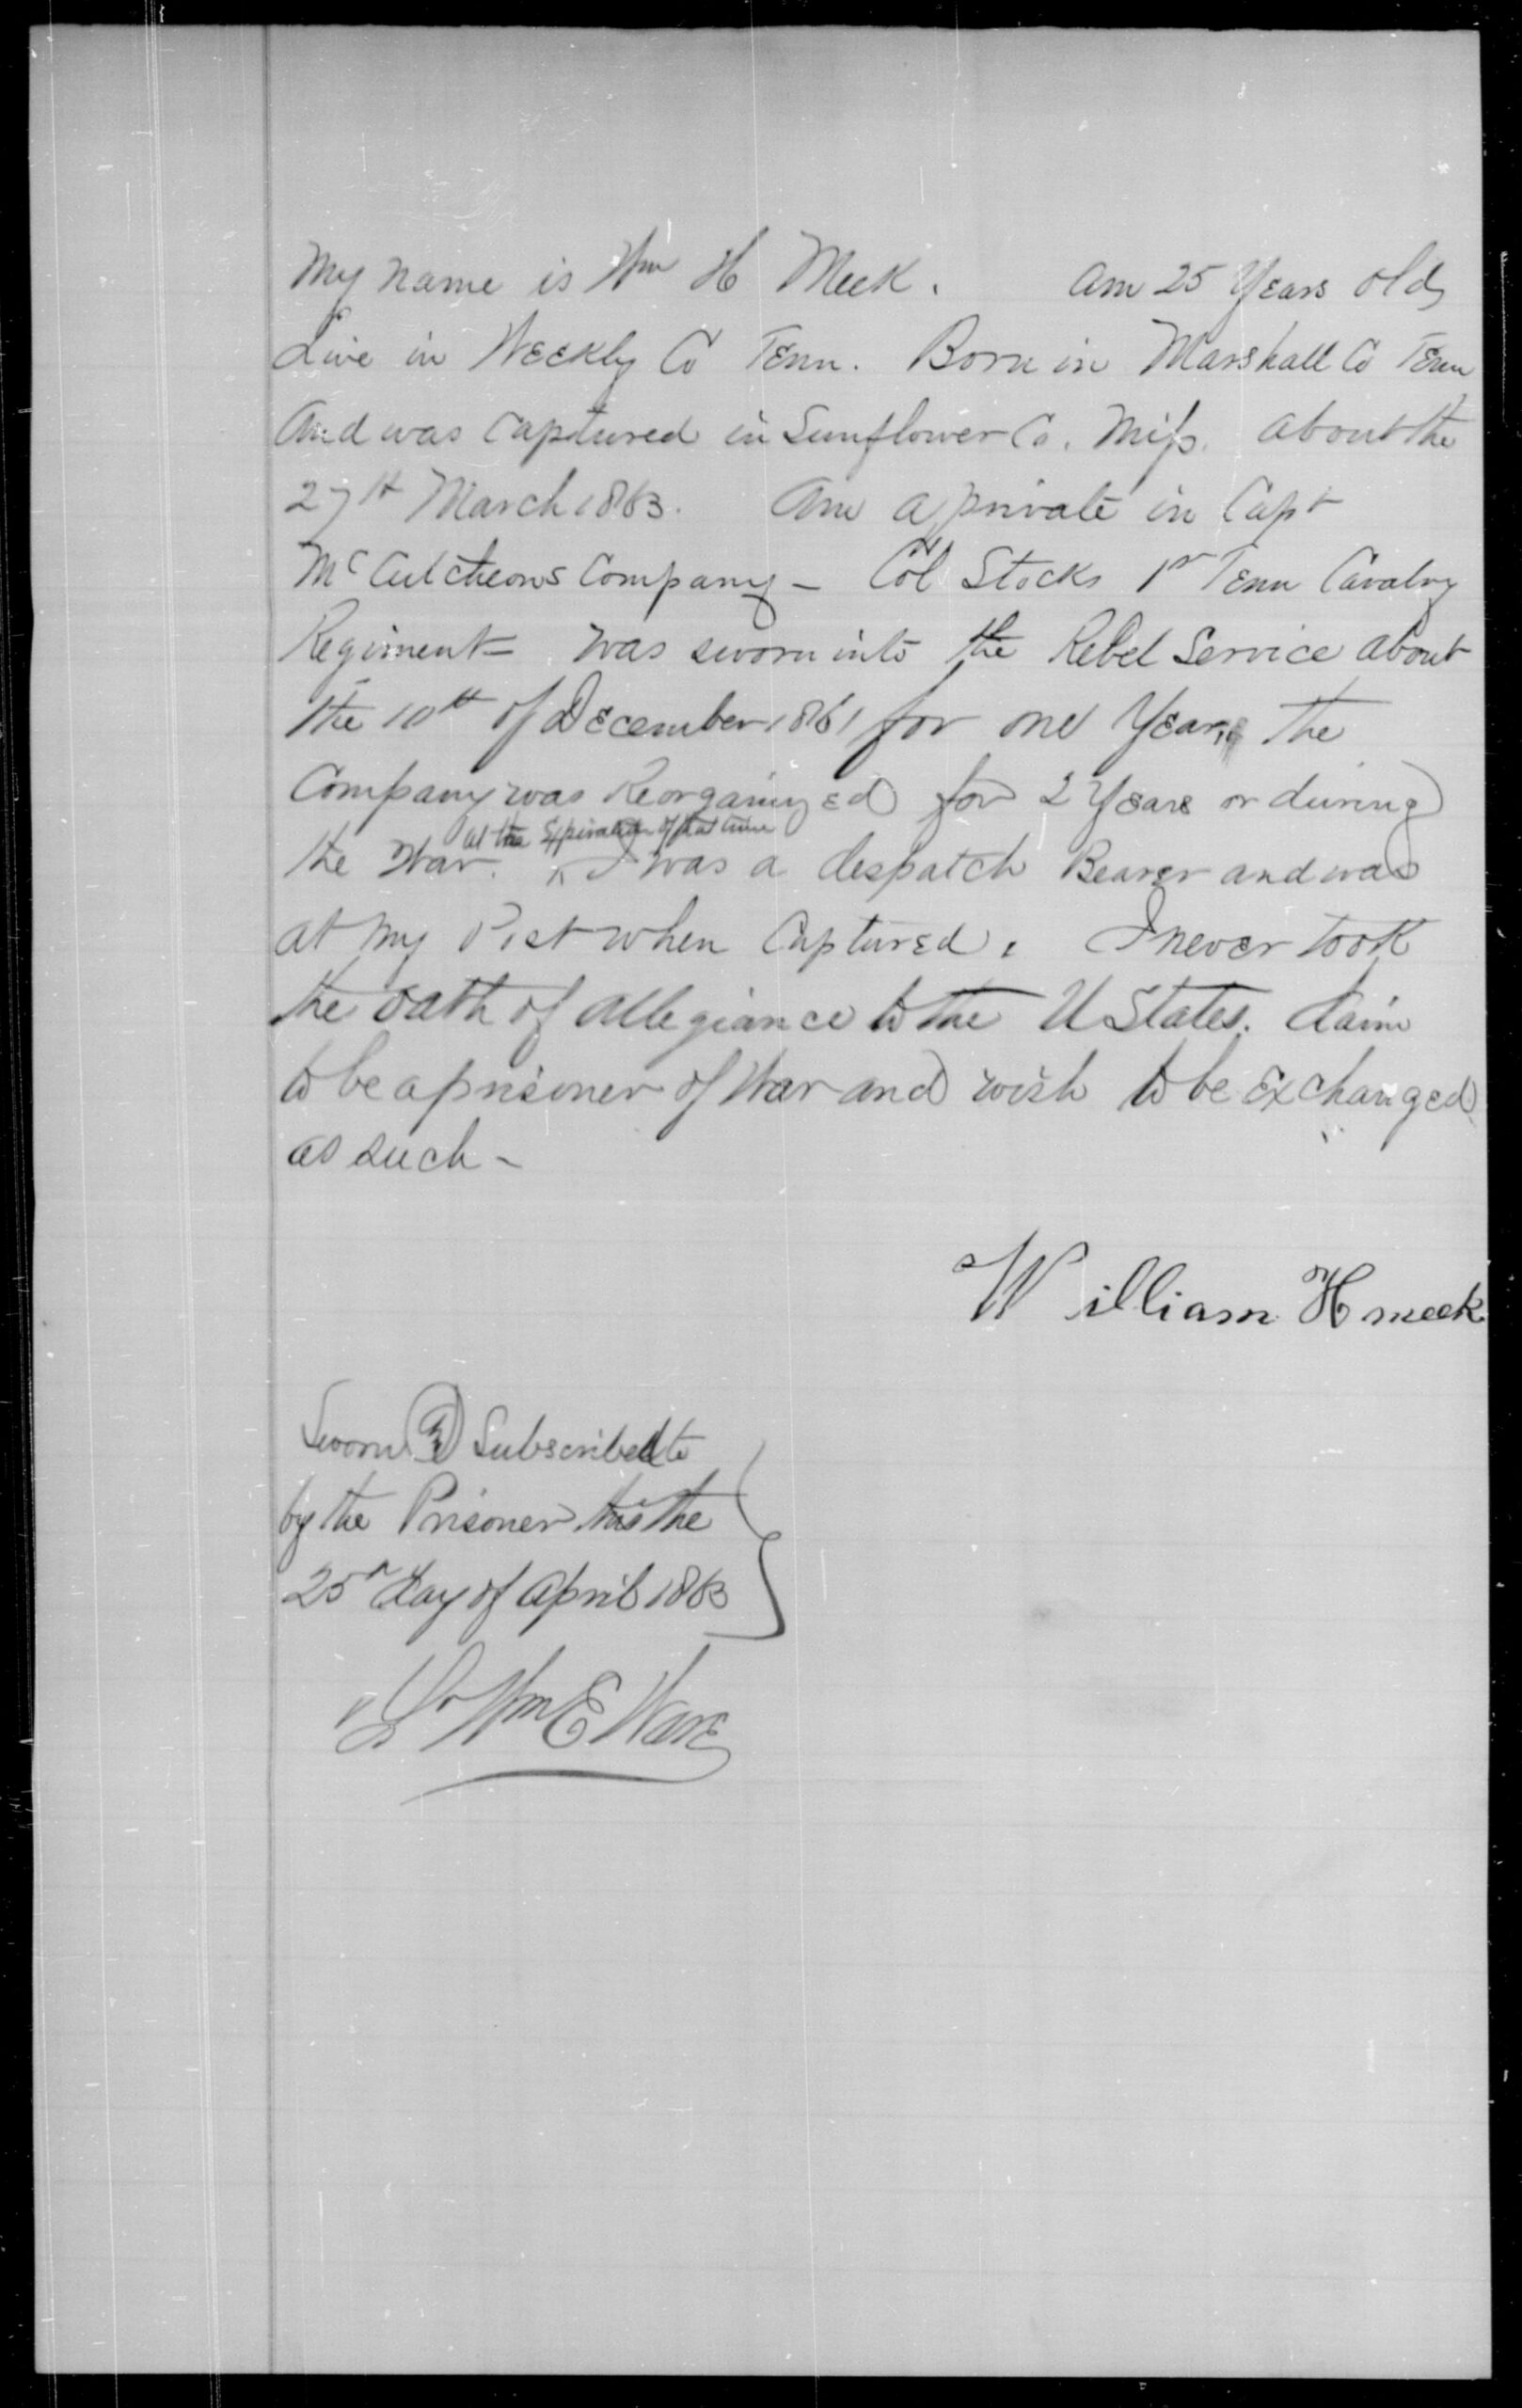 My name is Wm H Meek. Am 25 Years old
Live in Weekly Co Tenn. Born in Marshall Co Tenn
And was Captured in Sunflower Co. Miss. about the
27th March 1863. Am a private in Capt
McCutcheons Company - Col Stocks 1st Tenn Cavalry
Regiment - was sworn into the Rebel Service about
the 10th of December 1861 for one Year, The
Company was Reorganized for 2 Years or during
at the Expiration of that time
the War. I was a despatch Bearer and was
at my Post when Captured. I never took
the oath of allegiance to the U States. Claim
to be a prisoner of War and wish to be Exchanged
as such -
William H meek
Sworn & Subscribed to
by the Prisoner this the
25th day of April 1863
Wm E Ware